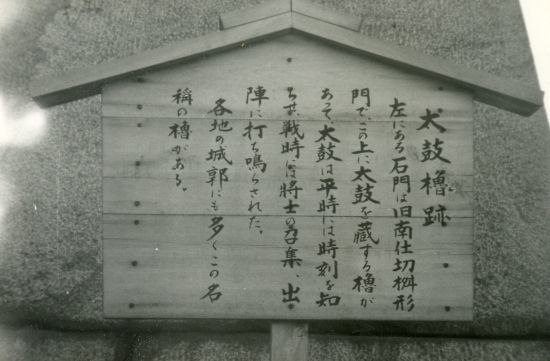 太鼓櫓跡
左にある石門は旧南仕切桝形
門で、この上に太鼓を蔵する櫓が
あって、太鼓は平時には時刻を知
らせ、戦時には将士の召集、出
陣に打ち鳴らされた。
各地の城郭にも多くこの名
称の櫓がある。